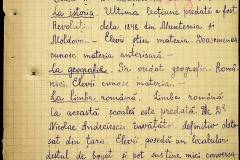 La istoria. Ultima lecțiune predată a fost
Revoluț. dela 1848 din Muntenia și
Moldova. Elevii știu materia. Deasemenea
cunosc materia anterioară.
La geografie. S'a predat geografia Româ-
niei. Elevii cunosc materia.
La limba română. Limba română
La această școală este predată de Dl
Nicolae Andreescu învățător definitiv deta-
șat din țară. Elevii posedă un vocabular
destul de bogat și pot susține mici conversa-